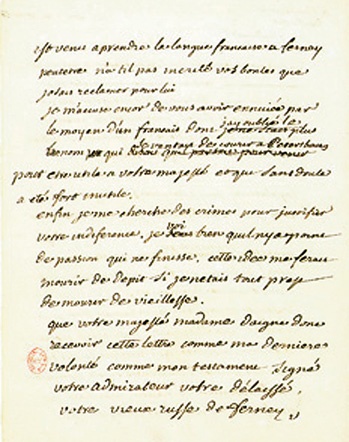 est venu aprendre la langue francaise a ferney
peutetre n'a til pas merité vos bontés que
josais reclamer pour lui
je m'accuse encor de vous avoir ennuiée par
le moyen d'un francais dont jay oublié le
nom qui se ventait de courir a Petersbourg
pour etre utile a votre majesté et qui sans doute
a eté fort inutile.
enfin je me cherche des crimes pour justifier
votre indiference. je voi bien quil ny a point
de passion qui ne finisse. cette idée me ferait
mourir de depit si je netais tout pres
de mourir de vieillesse.
que votre majesté madame daigne donc
recevoir cette lettre comme ma derniere
volonté comme mon testament signé
votre admirateur votre delaissé,
votre vieux russe de ferney